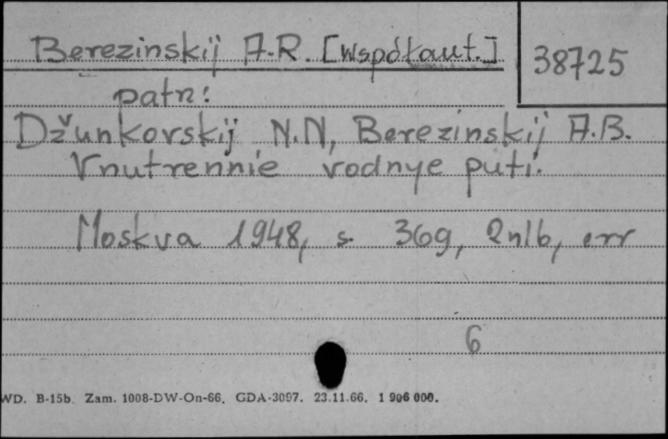 Berezinskij A.R. [Współaut.]
38725
patrz:
Džunkovskij N.N, Berezinskij A.B.
Vnutrennie vodnye puti.
Moskva 1948, s. 369, 2nlb, err
6
WD. B-15b. Zam. 1008-DW-On-66. GDA-3097. 23.11.66. 1 906 000.